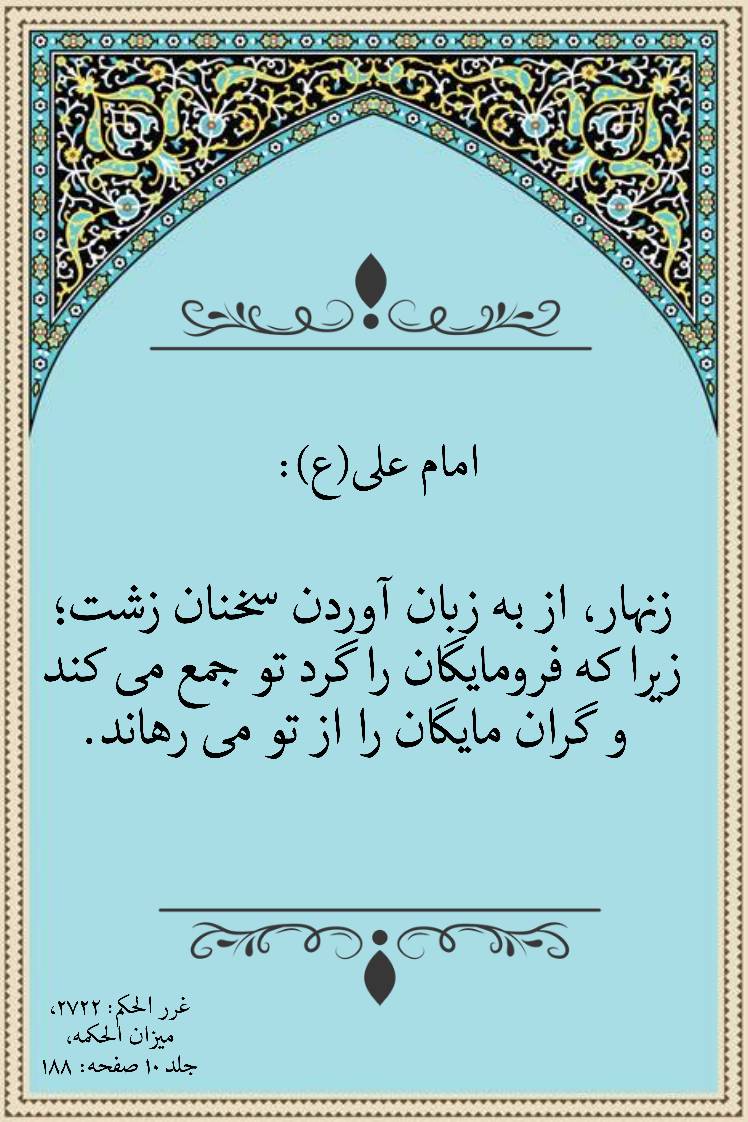 امام علی(ع):
زنهار، از به زبان آوردن سخنان زشت؛
زیرا که فرومایگان را گرد تو جمع می کند
و گران مایگان را از تو می رهاند.
غرر الحکم: ۲۷۲۲،
میزان الحکمه،
جلد ۱۰ صفحه: ۱۸۸